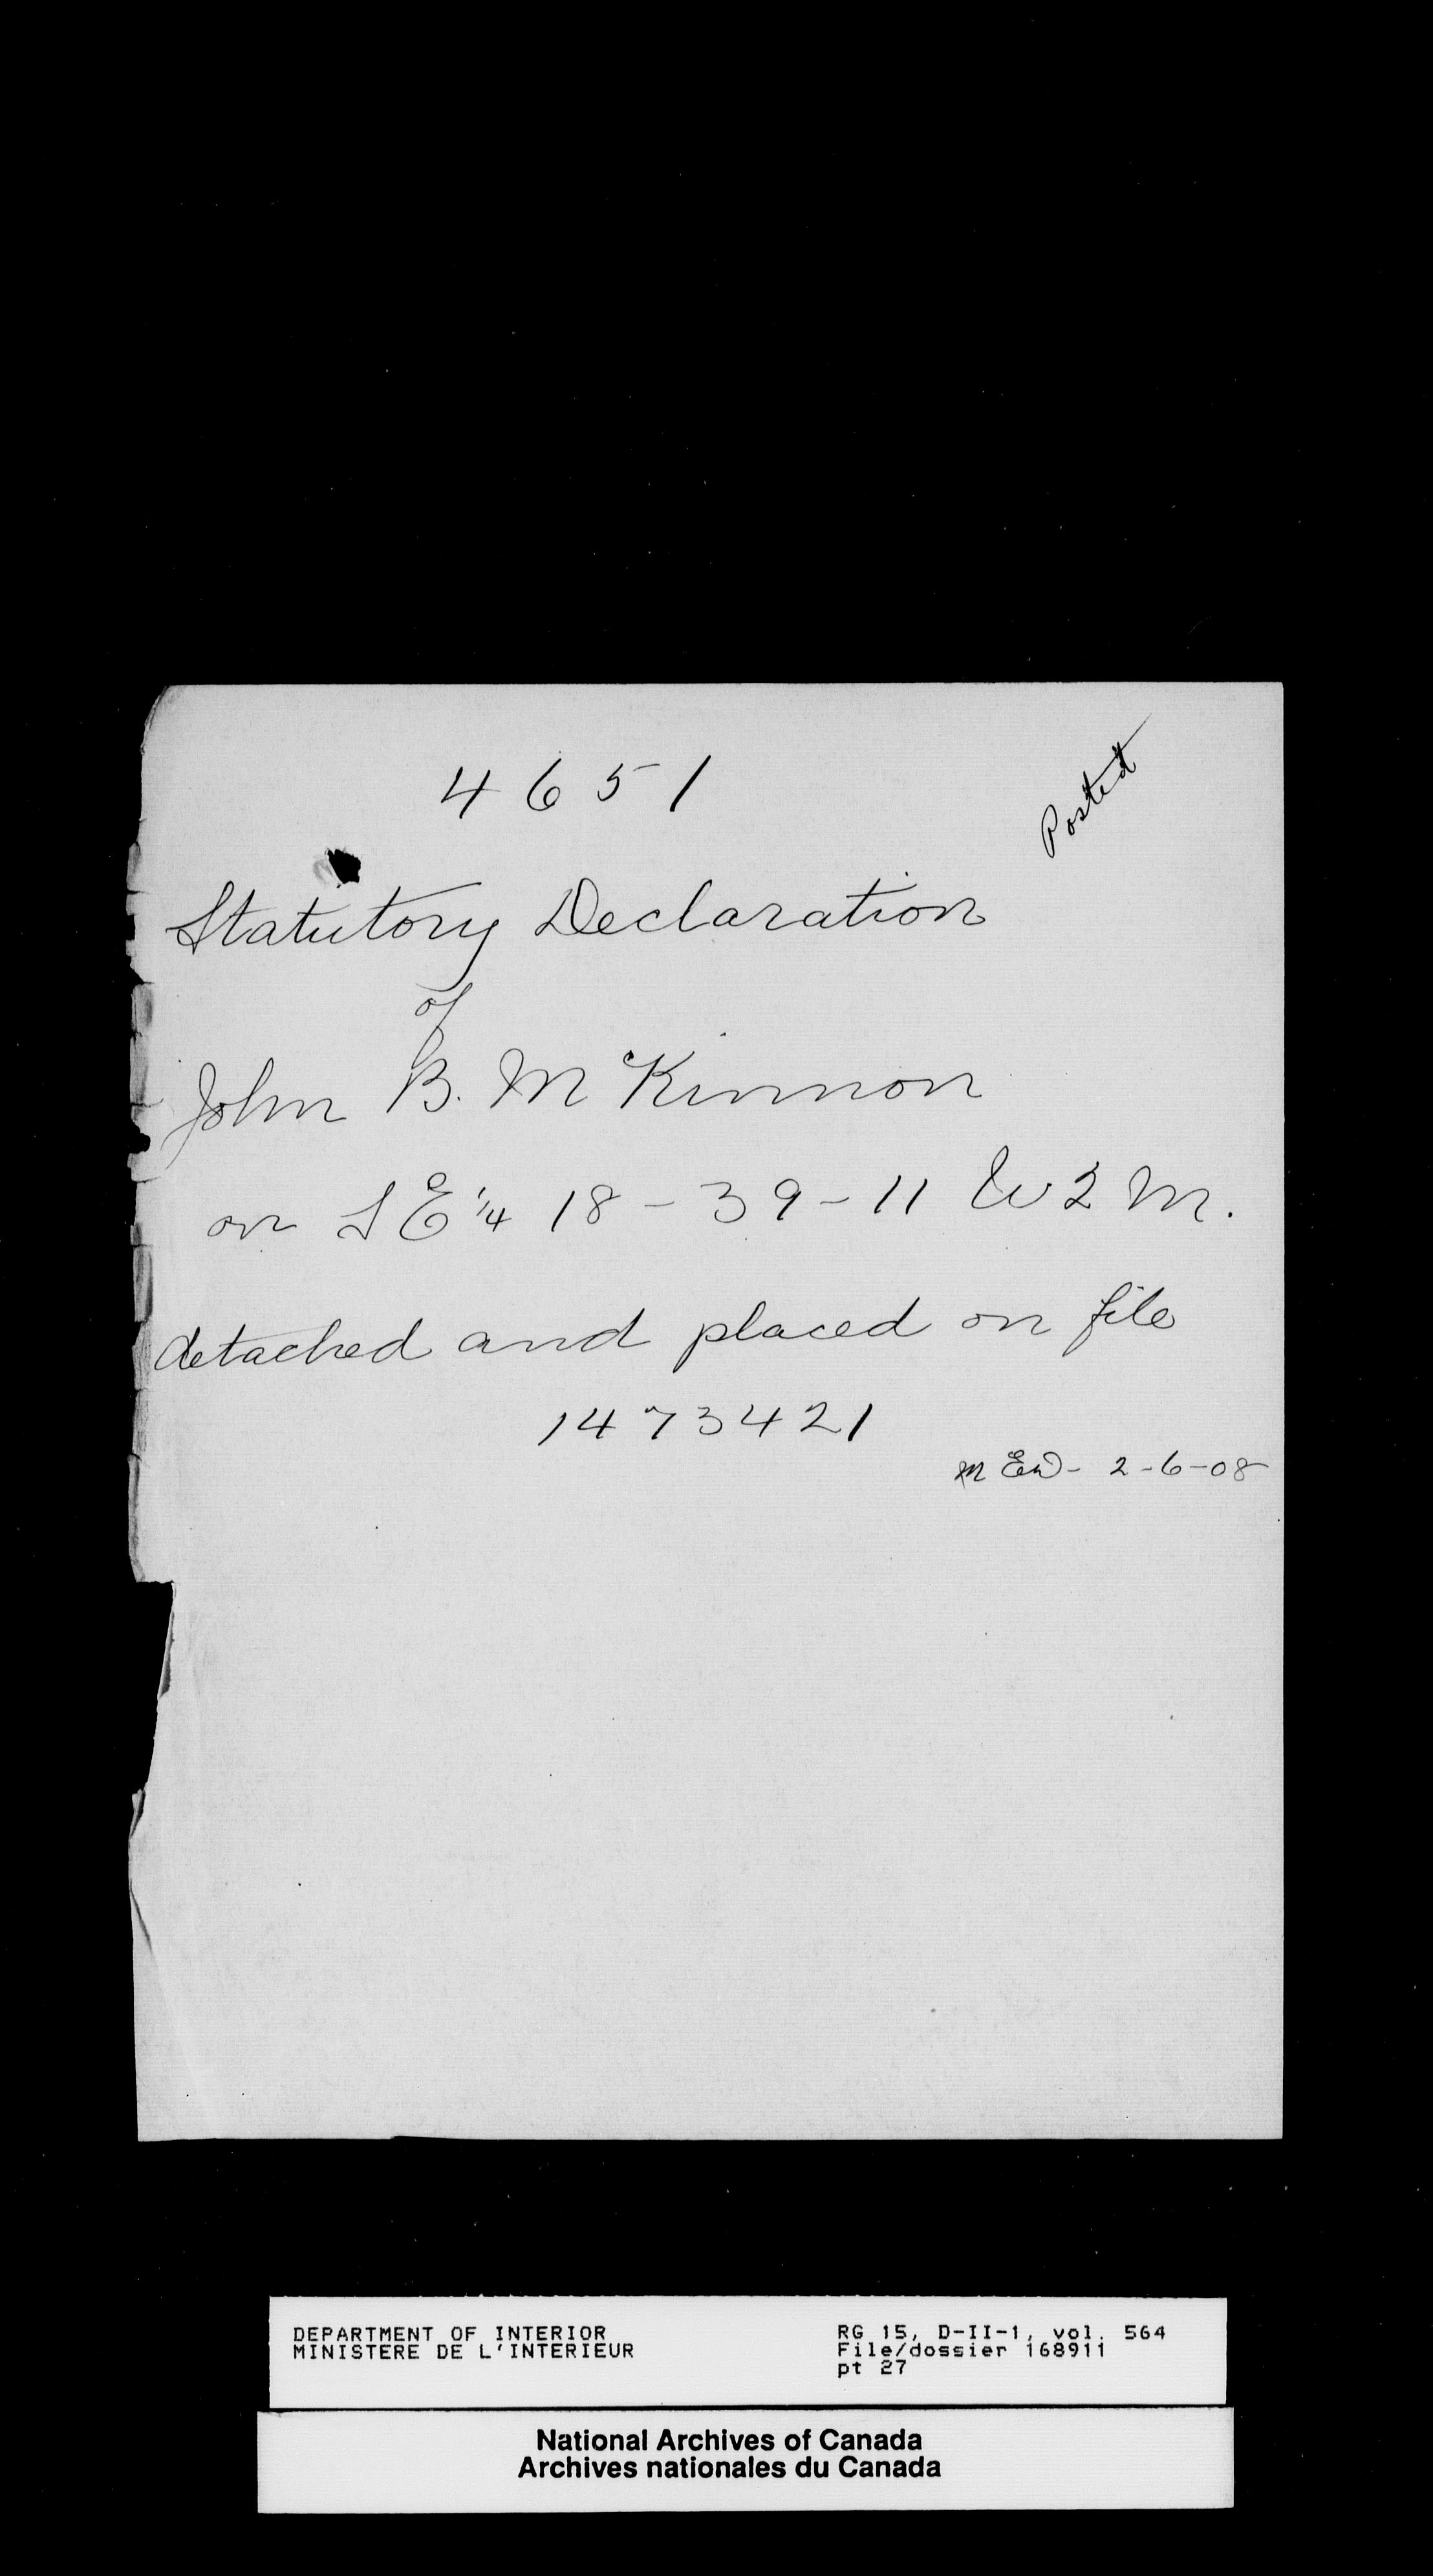 4651
Posted
Statutory Declaration
of
John B. McKinnon
on SE 1/4 18 - 39 - 11 W 2 M.
detached and placed on file
1473421
2-6-08
DEPARTMENT OF INTERIOR
MINISTERE DE L'INTERIEUR
RG 15, D-II-1, vol. 564
File/dossier 168911
pt 27
National Archives of Canada
Archives nationales du Canada